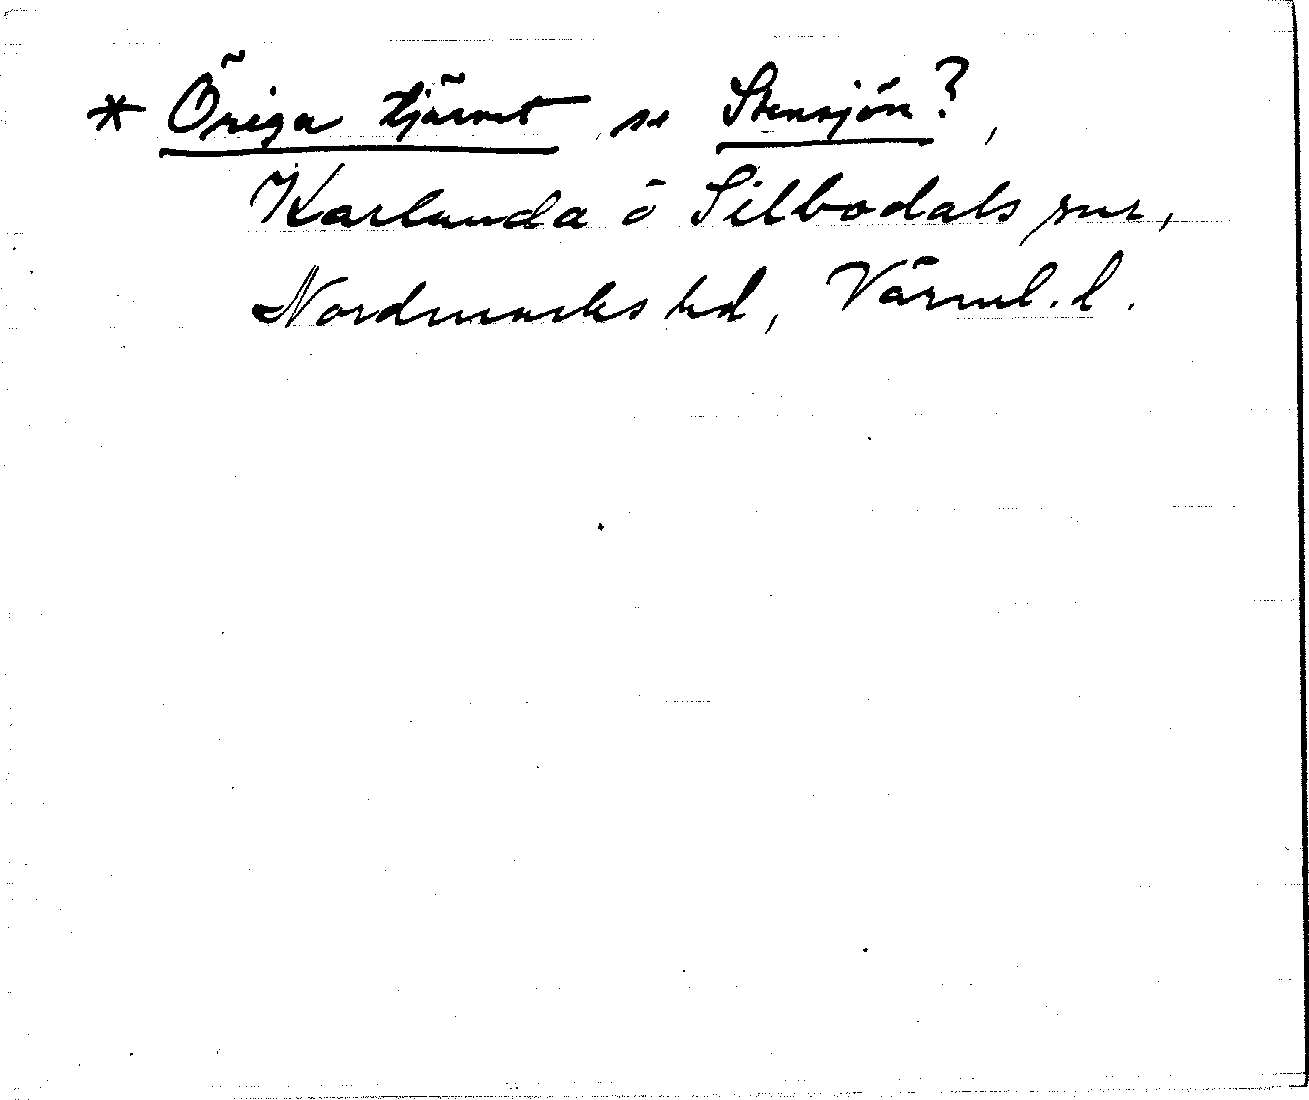 * Öriga tjärnet se Stensjön?,
Karlanda o Silbodals snr,
Nordmarks hd, Värml. l.